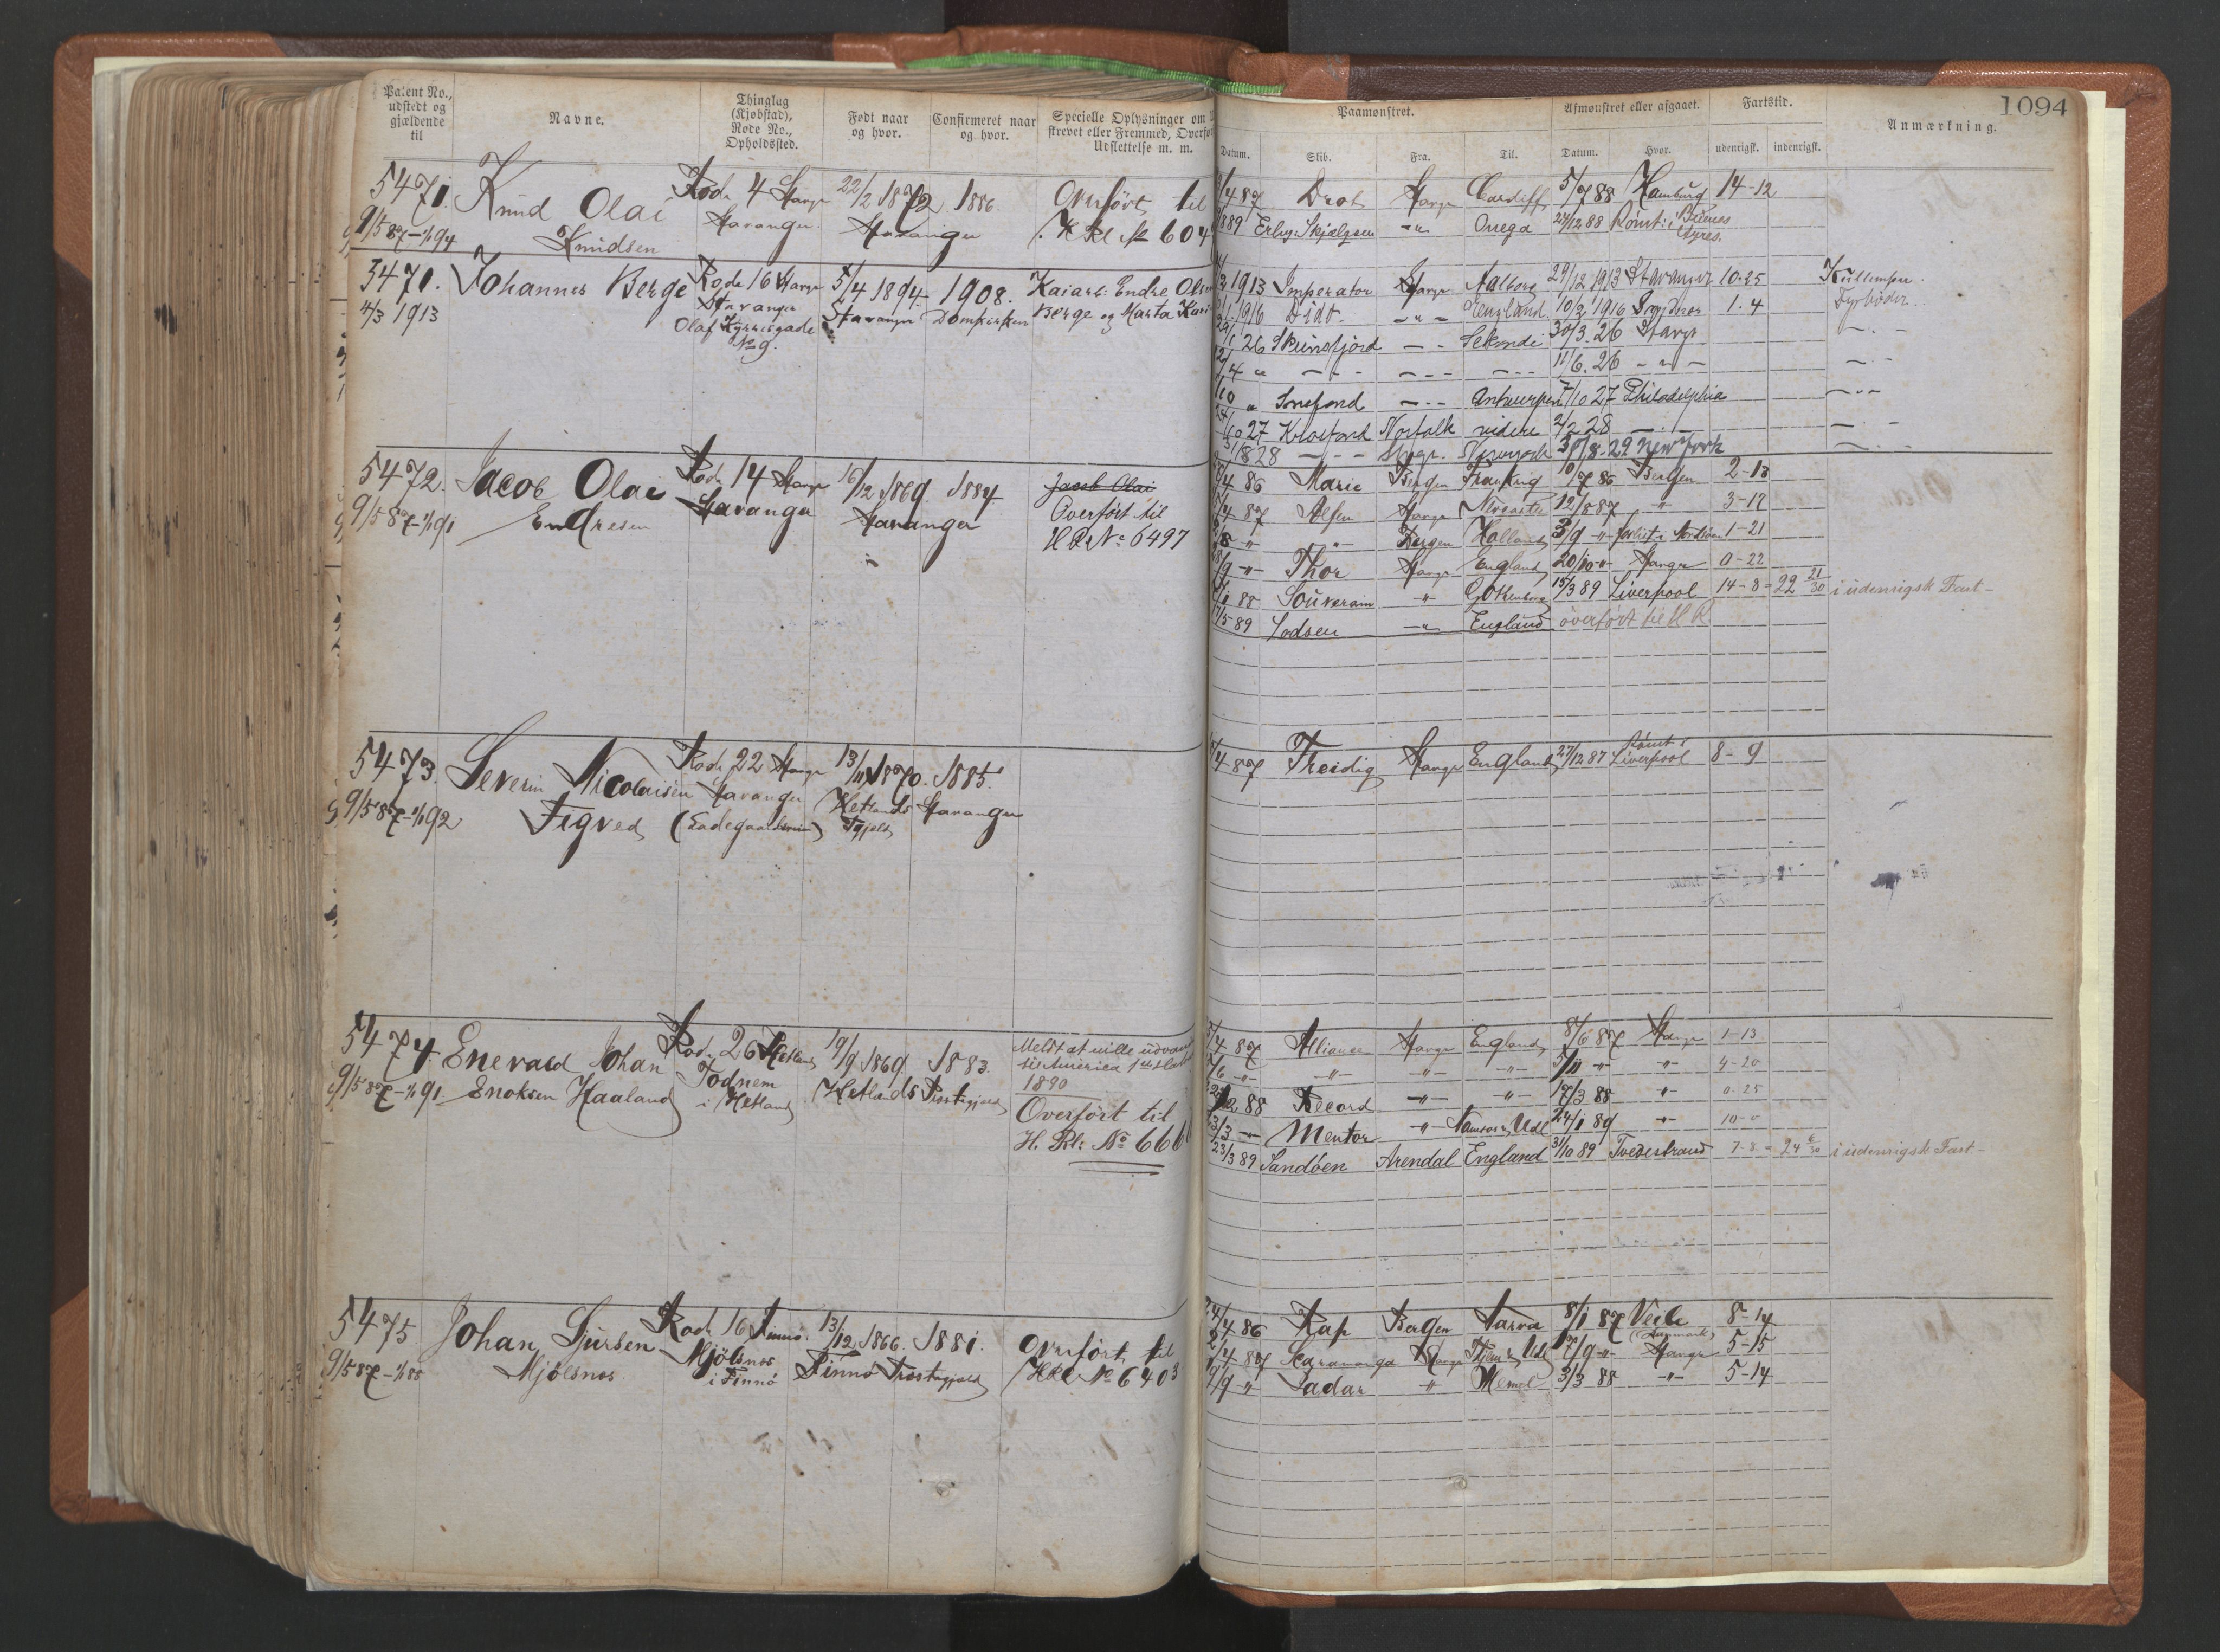 1094
Patent No., udstedt og gjældende til
Navne.
Thinglag (Kjøbstad), Rode No., Opholdssted.
Født naar og hvor.
Confirmeret naar og hvor.
Specielle Oplysninger om
strevet eller Fremmed, Overfør
Udslettelse m. m.
Paamønstret.
Afmønstret eller afgaaet.
Fartstid.
Anmærkning.
Datum. Skib. Fra. Til. Datum. Hvor. udenrigsk. indenrigsk.
5471. Knud Olai Rode 4 Stavgr 22/2 1872 1886 Overført til
9/5 87 - 1/1 94 Knudsen Stavanger Stavanger
4 87 Drot Stavgr Cardiff 5/7 88 Hamburg 14-12
889 Erling Skjalgsen -"- Onega 24/12 88 Rømt i Buenos Ayres.
5471. Johannes Berge Rode 16 Stavgr 5/4 1894 1908. Kaiarb. Endre Olsen
4/3 1913 Stavanger Stavanger Domkirken Berge og Marta Kari
Olaf Kyrresgade
No 9.
1913 Imperator Stavgr Aalborg 29/12 1913 Stavanger 10-25 Kullemper
1916 Dido -"- England 10/2 1916 1.4 Fyrbøder
26 30/3.26 Stavgr
4 " - - - 11/6.26 - " -
10 " Antwerpen 7/10 27 Philadelphia
10 27 Norfolk videre 2/2 28
828 Stvgr. Newyork 30/8-29 New York
5472. Jacob Olai Rode 14 Stavgr 16/12 1869 1884 Jacob Olai
9/5 87 - 1/1 91 Endresen Stavanger Stavanger Overført til
H R No 6497
4 86 Marie Bergen 10/7 86 Bergen 2-13
4 87 Alfen Stavgr Newcastle 12/8 87 " 3-17
8 " " Bergen Holland 3/9 " forlist i Nordsøen 1-21
9 " Thor Stavgr England 20/10 " Stavgr 0-22
1 88 Souverain " Gothenborg 15/3 89 Liverpool 14-8 = 22 21/30 i udenrigsk Fart -
5 89 Lodsen " England overført til H R
5473. Severin Nicolaisen Rode 22 Stavgr 13/11 1870. 1885.
9/5 87 - 1/1 92 Tegved Stavanger (Ladegaardsveien) Hetlands Pgjeld Stavanger
4 87 Freidig Stavgr England 27/12 87 Rømt i Liverpool 8-9
5474 Enevald Johan Rode 26 Hetland 19/9 1869 1883. Meldt at ville udvandre
9/5 87 - 1/1 91 Enoksen Haaland Todnem i Hetland Hetlands Præstegjæld til America
1890
Overført til
H. Rl: No 666
4 87 Alliance Stavgr England 8/6 87 Stavgr 1-13
6 " " " " 5/11 " " 4-20
2 88 Record " " 17/3 88 " 0-25
3/3 " Mentor " Namsos & Udl 24/1 89 " 10-0
23/3 89 Sandøen Arendal England 31/10 89 Tvedestrand 7-8 = 24 6/30 i udenrigsk Fart -
5475 Johan Sjursen Rode 16 Finnø 13/12 1866. 1881. Overført til
9/5 87 - 1/1 88 Mjølsnes Mjølsnes i Finnø Finnø Præstegjæld HRl No 6403
4 86 Rap Bergen Narva 8/1 87 Veile (Danmark) 8-14
4 87 Stavgr Udl 17/9 " Stavgr 5-15
9 " Ladar " Memel 3/3 88 " 5-14